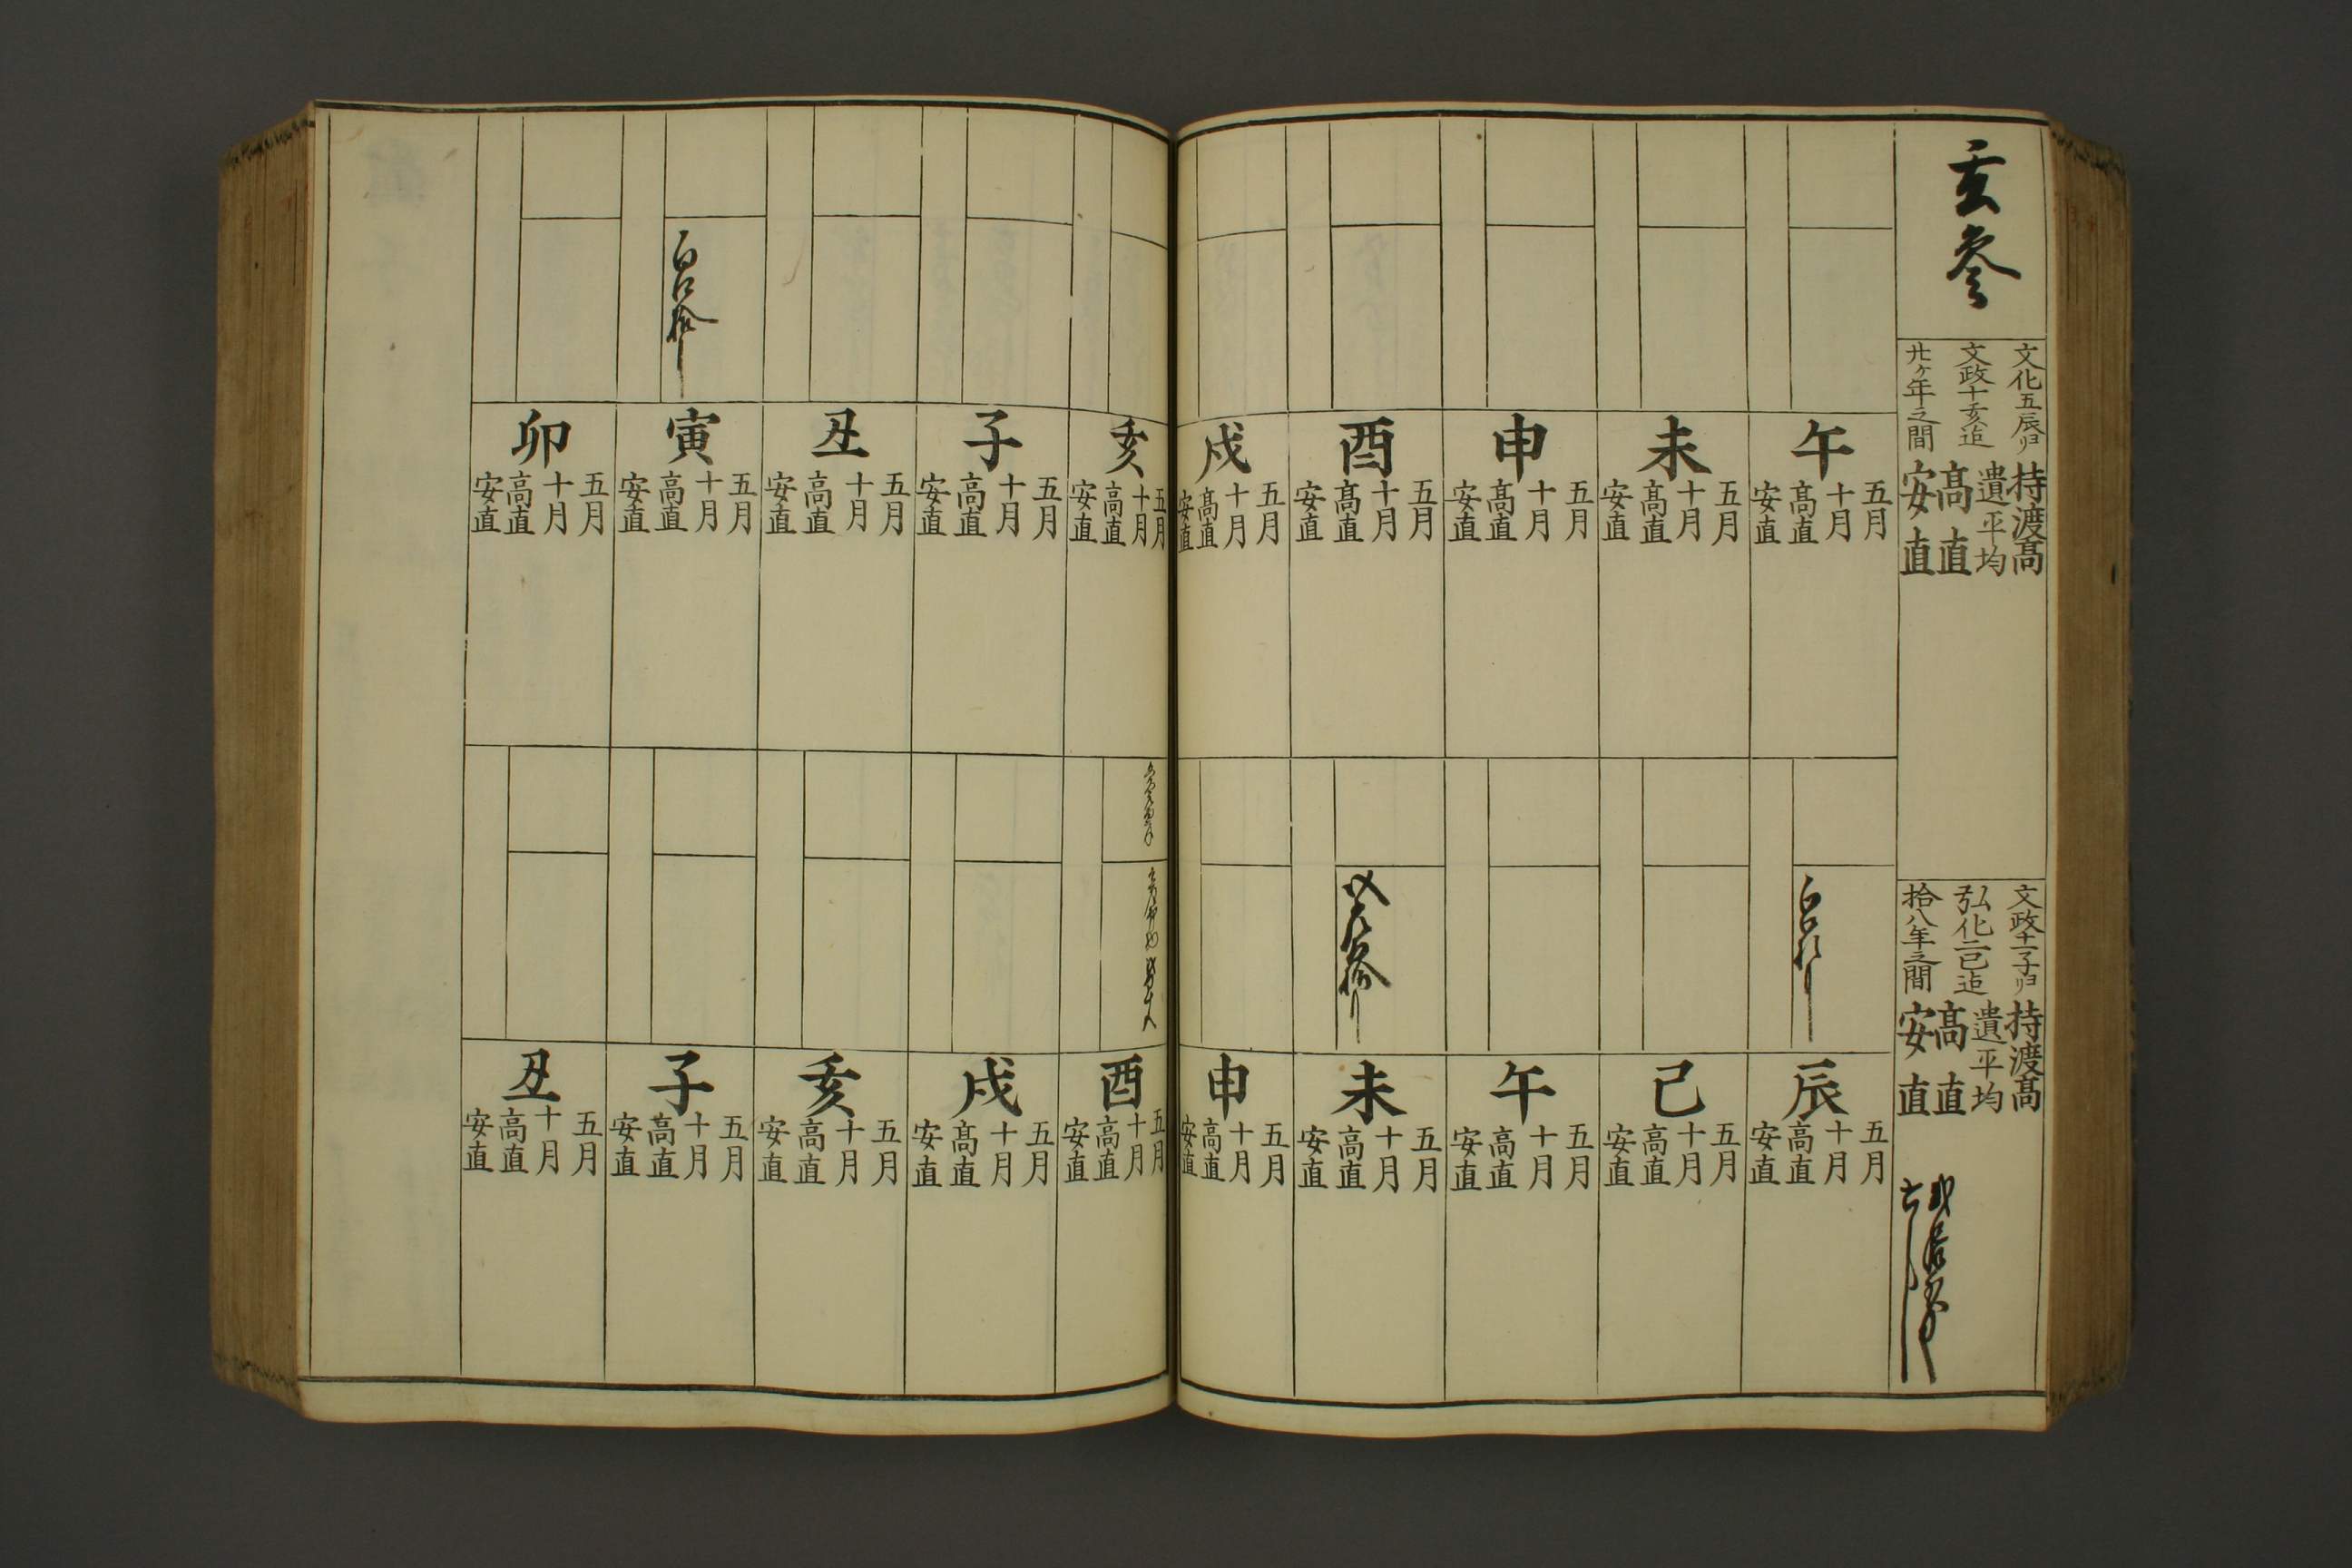 玄参
文化五辰ヨリ
文政十亥迠
廿ヶ年之間
持渡高
遺平均
高直
安直
文政十一子ヨリ
弘化二巳迠
拾八年之間
持渡高
遺平均
高直
安直
午
五月
十月
高直
安直
未
五月
十月
高直
安直
申
五月
十月
高直
安直
酉
五月
十月
高直
安直
戌
五月
十月
高直
安直
亥
五月
十月
高直
安直
子
五月
十月
高直
安直
丑
五月
十月
高直
安直
寅
五月
十月
高直
安直
卯
五月
十月
高直
安直
辰
五月
十月
高直
安直
巳
五月
十月
高直
安直
午
五月
十月
高直
安直
未
五月
十月
高直
安直
申
五月
十月
高直
安直
酉
五月
十月
高直
安直
戌
五月
十月
高直
安直
亥
五月
十月
高直
安直
子
五月
十月
高直
安直
丑
五月
十月
高直
安直